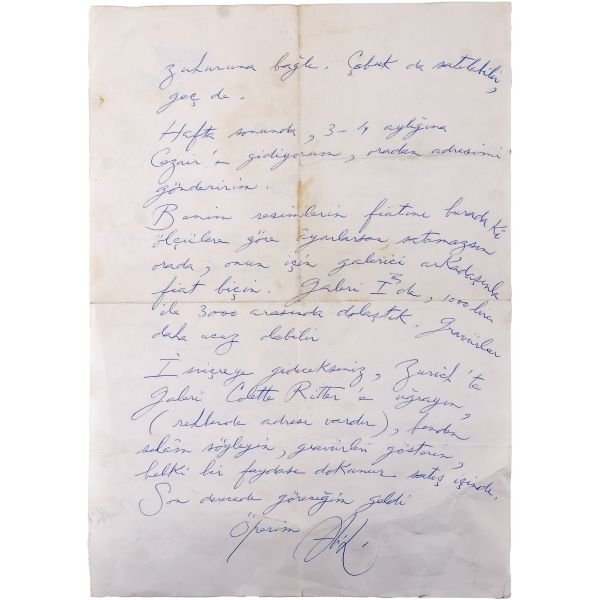 zuhuruna bağlı. Çabuk da satılabilir,
geç de.
Hafta sonunda, 3-4 aylığına
Cezair'e gidiyorum, oradan adresimi
gönderirim.
Benim resimlerin fiatını buradaki
ölçülere göre ayarlarsan satamazsın
orada, onun için galerici arkadaşınla
fiat biçin. Galeri I'de, 1000 lira
ile 3000 arasında dolaştık. Gravürler
daha ucuz olabilir
İsviçreye gidecekseniz, Zurich'te
Galeri Colette Ritter'e uğrayın,
(rehberde adresi vardır), benden
selâm söyleyin, gravürleri gösterin,
belki bir faydası dokunur satış işinde.
Son derecede göreceğim geldi
Öperim